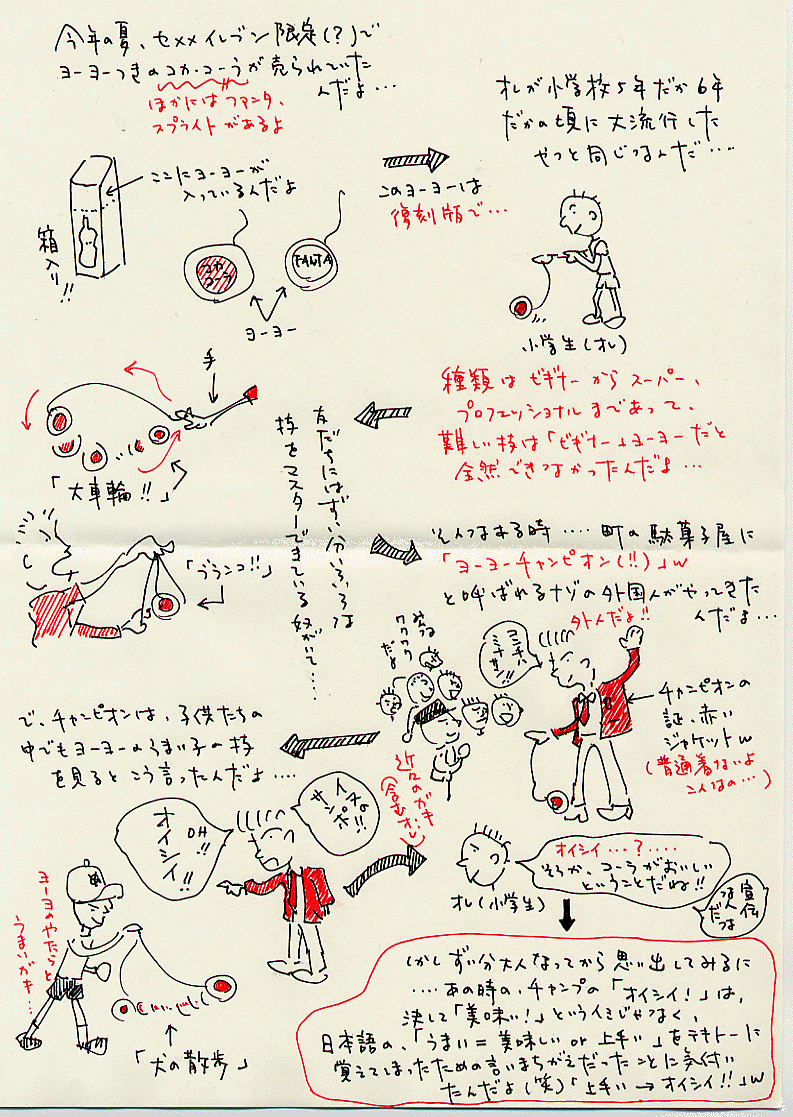 今年の夏、セ××イレブン限定(?)で
ヨーヨーつきのコカ・コーラが売られていた
んだよ…
ほかにはファンタ、
スプライトがあるよ
ここにヨーヨーが
入っているんだよ
箱入り!!
コカ
コーラ
FANTA
ヨーヨー
このヨーヨーは
復刻版で…
オレが小学校5年だか6年
だかの頃に大流行した
やつと同じなんだ…
小学生(オレ)
種類はビギナーからスーパー、
プロフェッショナルまであって、
難しい技は「ビギナー」ヨーヨーだと
全然できなかったんだよ…
手
「大車輪!!」
「ブランコ!!」
友だちにはずい分いろいろな
技をマスターできている奴がいて…
そんなある時…町の駄菓子屋に
「ヨーヨーチャンピオン(!!)」w
と呼ばれるナゾの外国人がやってきた
んだよ…
外人だよ!!
みんな
ワクワク
だよ
コンチハ
ミナサン!!
チャンピオンの
証、赤い
ジャケットw
(普通着ないよ
こんなの…)
近所のガキ
(含むオレ)
で、チャンピオンは、子供たちの
中でもヨーヨーのうまい子の技
を見るとこう言ったんだよ…
イヌの
サンポ!!
OH!!
オイシイ!!
ヨーヨーのやたらと
うまいガキ…
「犬の散歩」
オレ(小学生)
オイシイ…?…
そうか、コーラがおいしい
ということだね!!
宣伝
だな
しかしずい分大人なってから思い出してみるに
…あの時の、チャンプの「オイシイ!」は、
決して「美味い!」というイミじゃなく、
日本語の、「うまい=美味しい or 上手い」をテキトーに
覚えてしまったための言いまちがえだったことに気付い
たんだよ(笑)「上手い→オイシイ!!」w